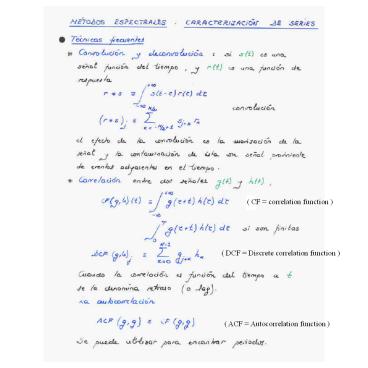 MÉTODOS ESPECTRALES. CARACTERIZACIÓN DE SERIES
Técnicas frecuentes
* Convolución y deconvolución: si s(t) es una
señal función del tiempo, y r(t) es una función de
respuesta
r * s = ∫ s(t-τ) r(τ) dτ
convolución
(r * s)j = Σ sj-k rk
el efecto de la convolución es la suavización de la
señal y la contaminación de ésta con señal proveniente
de eventos adyacentes en el tiempo.
* Correlación entre dos señales g(t) y h(t),
CF(g,h)(t) = ∫ g(τ+t) h(τ) dτ ( CF = correlation function )
∫ g(τ+t) h(τ) dτ si son finitas
DCF(g,h)j = Σ gj+k hk ( DCF = Discrete correlation function )
Cuando la correlación es función del tiempo a t
se la denomina retraso (o lag).
La autocorrelación
ACF(g,g) = CF(g,g) ( ACF = Autocorrelation function )
Se puede utilizar para encontrar periodos.